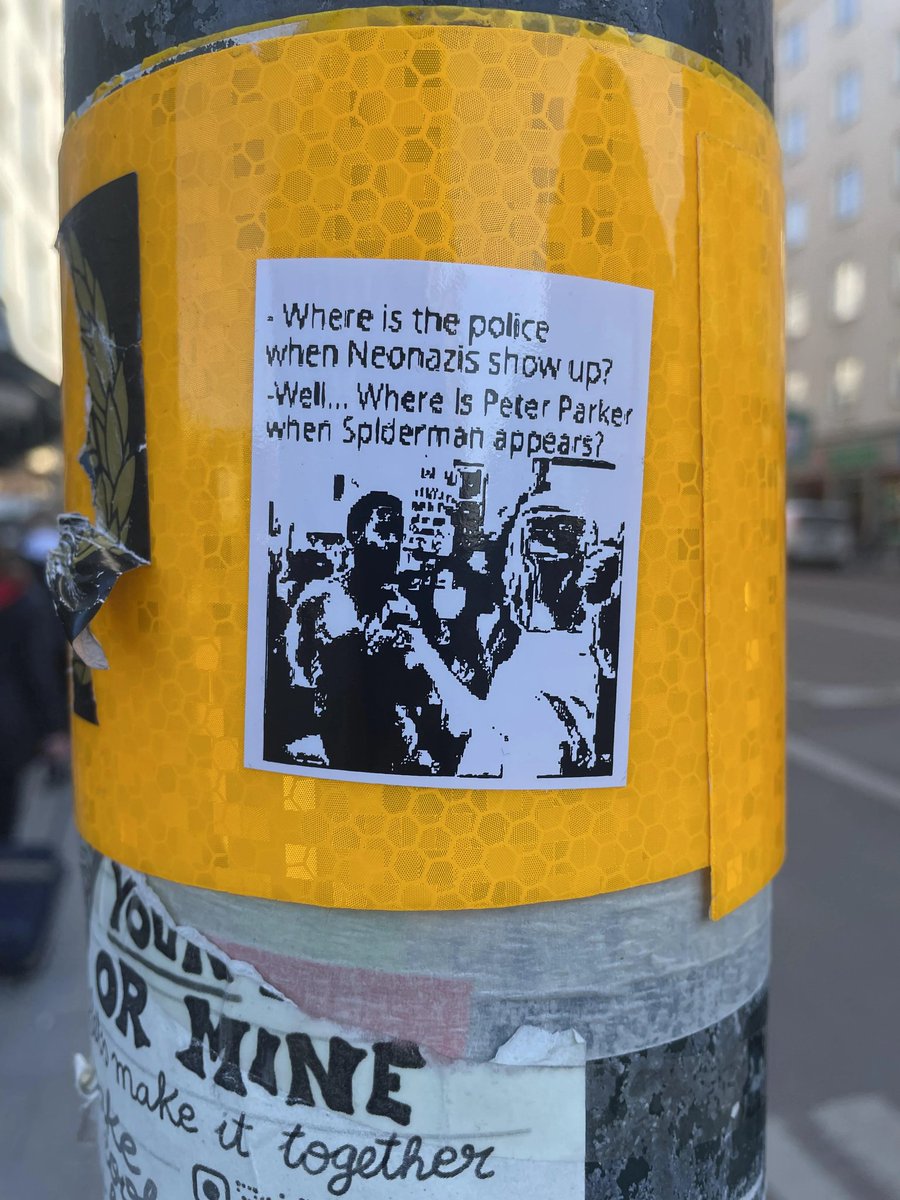 - Where is the police
when Neonazis show up?
-Well... Where Is Peter Parker
when Spiderman appears?
OR MINE
make it together